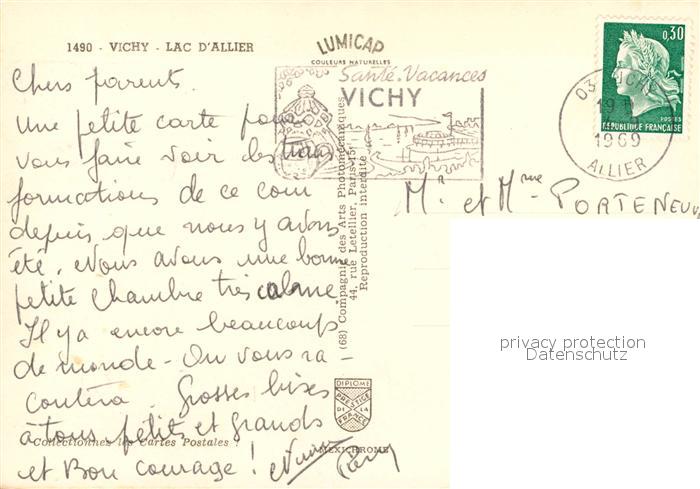 1490 - VICHY - LAC D'ALLIER
LUMICAP
COULEURS NATURELLES
Santé-Vacances
VICHY
0,30
POSTES
RÉPUBLIQUE FRANÇAISE
03 VICHY
1969
ALLIER
Chers parents.
Une petite carte pour
vous faire voir les trans
formations de ce coin
depuis que nous y avons
été. Nous avons une bonne
petite chambre très calme.
Il y a encore beaucoup
de monde - On vous ra-
contera. Grosses bises
à tous petits et grands
et Bon courage !
Mr et Mme PORTENEUV
(68) Compagnie des Arts Photomécaniques
44, rue Letellier, Paris-15e
Reproduction interdite
DIPLOME
PRESTIGE
DE LA
FRANCE
Collectionnez les Cartes Postales
MEXICHROME
privacy protection
Datenschutz